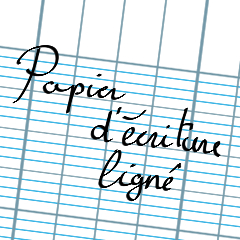 Papier
d'écriture
ligné